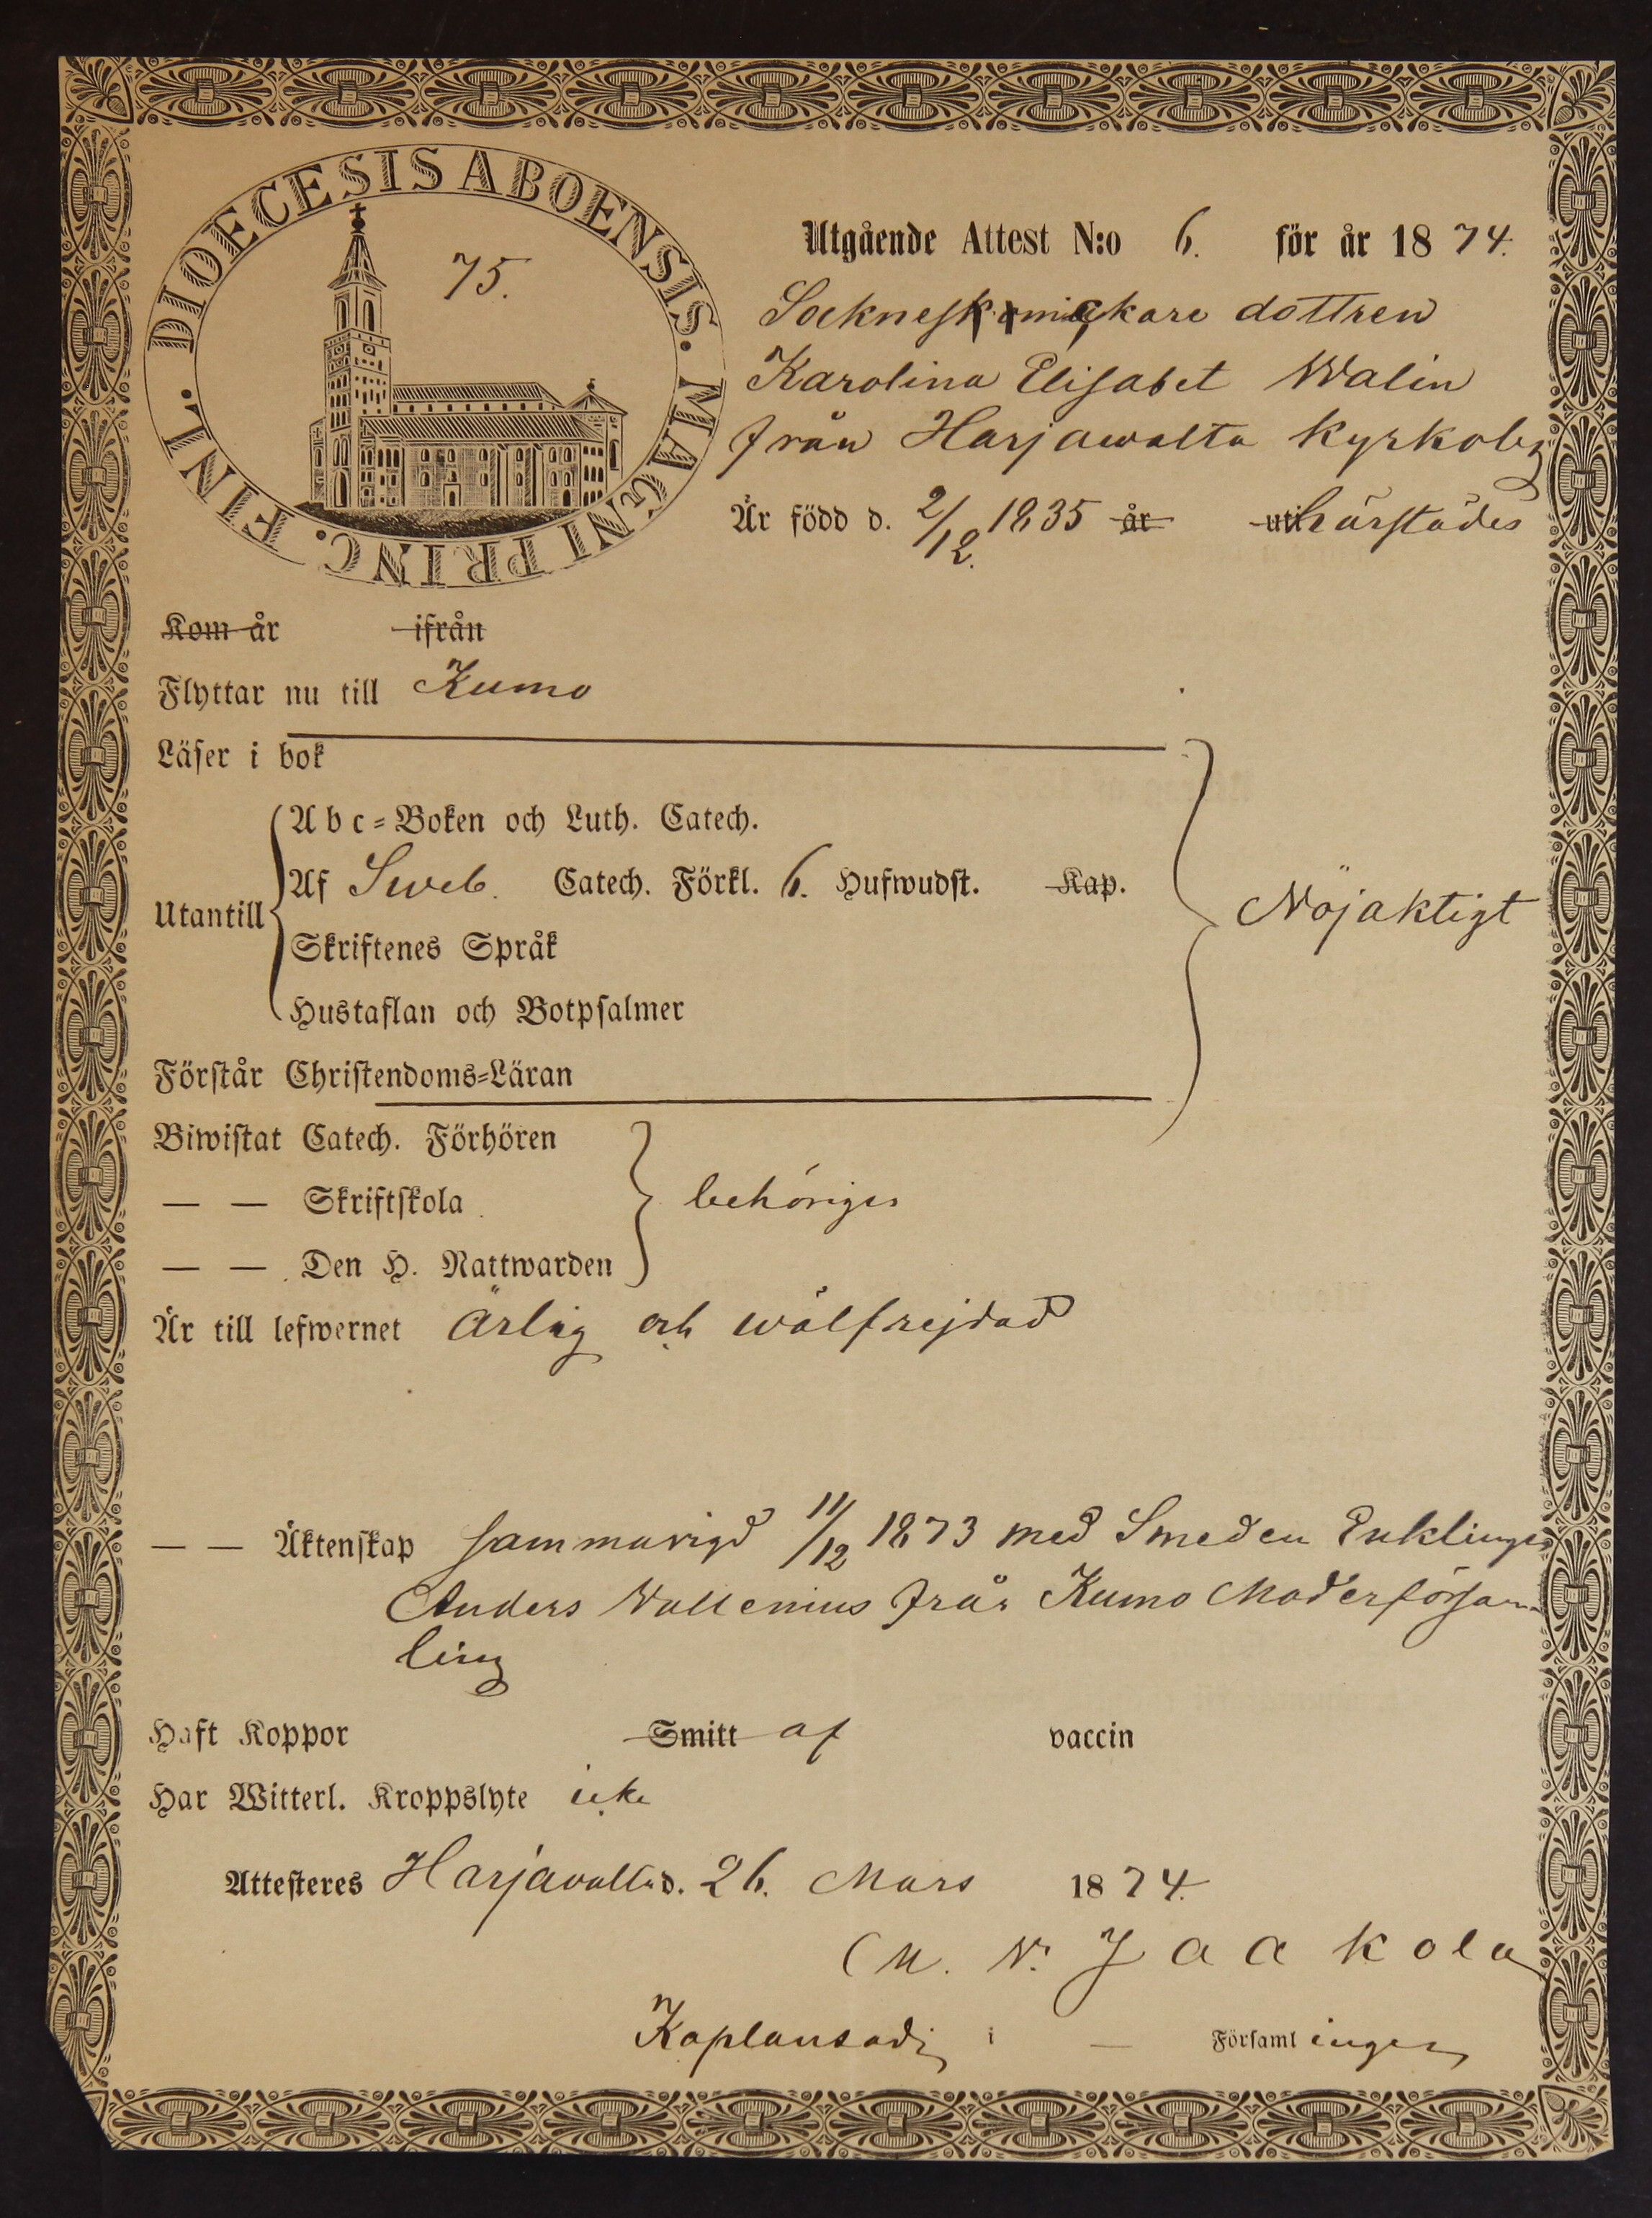 DIOECESIS ABOENSIS. MAGNI PRINC. FINL.
75.
Utgående Attest N:o 6. för år 1874.
dottren
Karolina Elisabet Walin
från Harjawalta Kyrkoby
Är född d. 2/12. 1835 år uti härstädes
Kom år ifrån
Flyttar nu till Kumo
Läser i bok
Utantill
Abc-Boken och Luth. Catech.
Af Sweb. Catech. Förkl. 6. Hufwudst. Kap.
Skriftenes Språk
Hustaflan och Botpsalmer
Förstår Christendoms-Läran
Nöjaktigt
Biwistat Catech. Förhören
— — Skriftskola
— — Den H. Nattwarden
behörigen
Är till lefwernet ärlig och wälfrejdad
— — Äktenskap sammanvigd 11/12 1873 med Smeden Enklingen
Anders Wallenius från Kumo Moderförsam
ling
Haft Koppor Smitt af vaccin
Har Witterl. Kroppslyte icke
Attesteres Harjavalta d. 26. Mars 1874.
Jaakola
Kaplansadj i — Församlingen